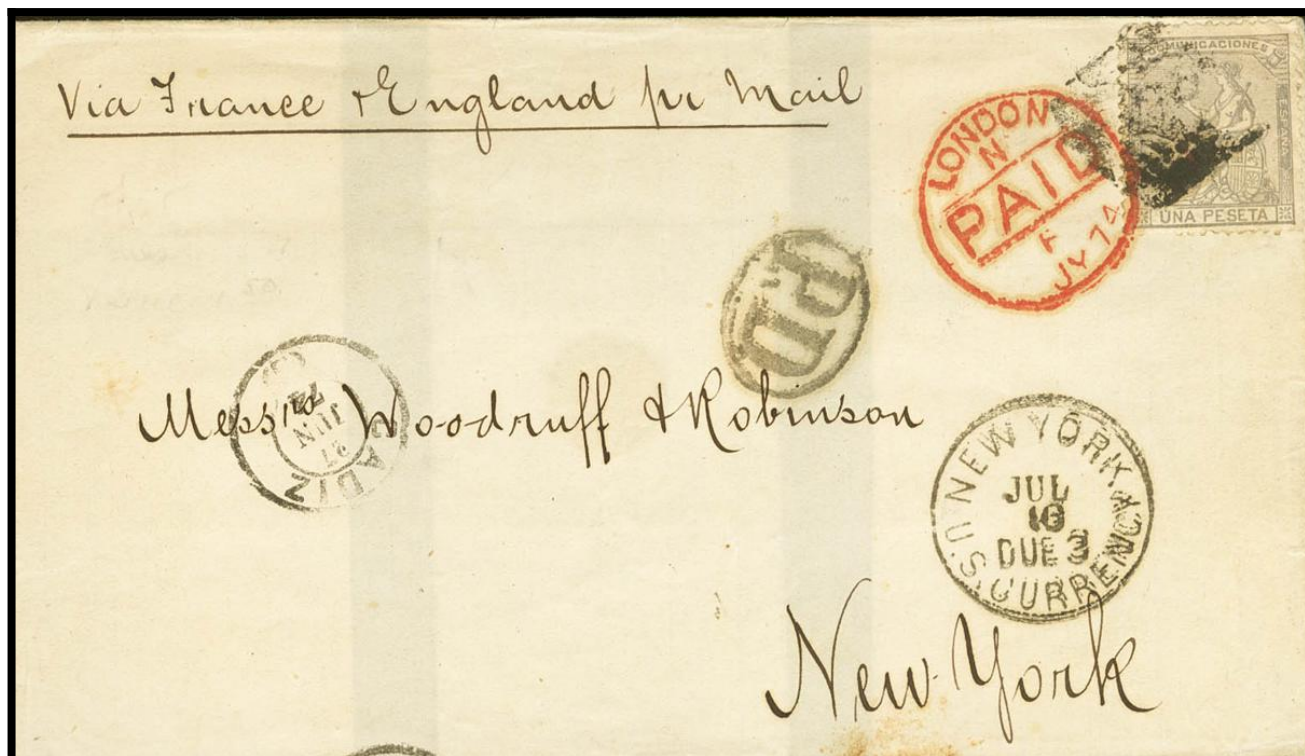 Via France & England pr Mail
COMUNICACIONES
ESPAÑA
UNA PESETA
LONDON
N
PAID
F
JY 74
PD
Messrs Woodruff & Robinson
CADIZ
27
JUN
74
NEW YORK
JUL
16
DUE 3
U.S. CURRENCY
New York